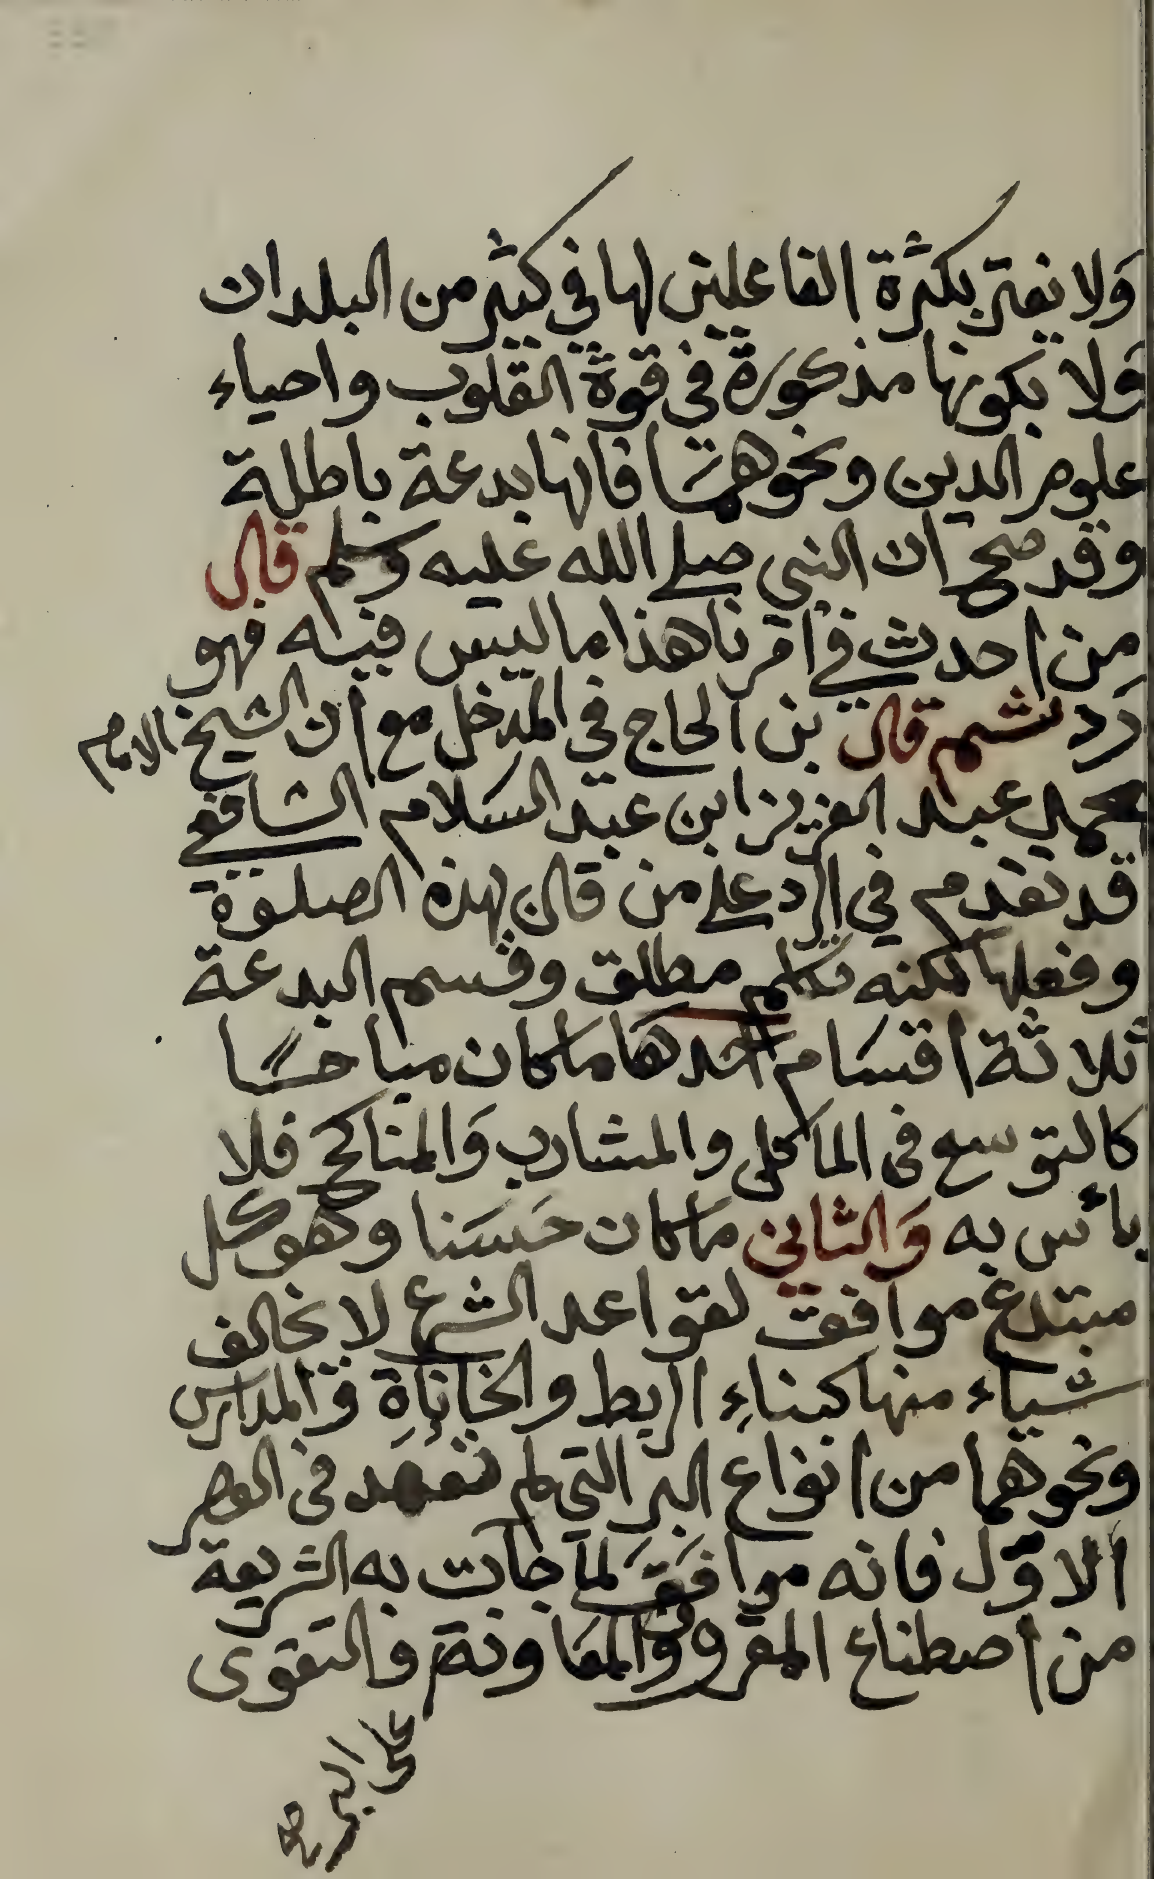 وَلا يغتر بكثرة الفاعلين لها في كثير من البلدان
وَلا بكونها مذكورة في قوة القلوب واحياء
علوم الدين ونحوهما فانها بدعة باطلة
وقد صح ان النبي صلى الله عليه وسلم قال
من احدث في امرنا هذا ما ليس فيه فهو
رَد ثم قال بن الحاج في المدخل مع ان الشيخ الامام
محمد عبد العزيز ابن عبد السلام الشافعي
قد تقدم في الرد على من قال بهذه الصلوة
وفعلها لكنه تكلم مطلق وقسم البدعة
ثلاثة اقسام احدها ما كان مباحسًا
كالتوسع في الماكل والمشارب وَالمناكح فلا
بأس به وَالثاني ما كان حَسَنا وهو كل
مبتدع موافق لقواعد الشرع لا يخالف
شياء منها كبناءِ الربط والخاناةِ وَالمدارس
ونحوهما من انواع البر التي لم تعهد في العصر
الاوّل فانه موافق لما جات به الشريعة
من اصطناع المعروف والمعاونة والتقوى
على البر